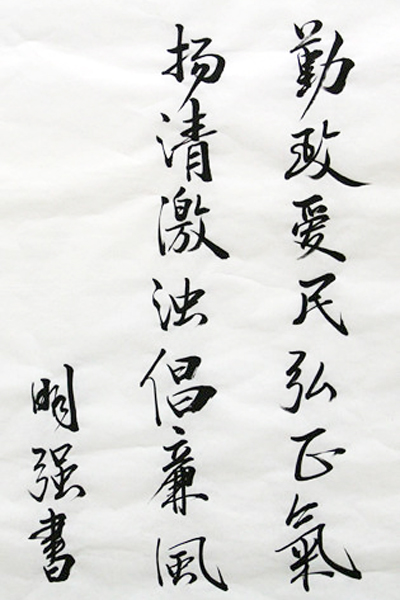 勤政爱民弘正氣
扬清激浊倡廉風
明强書